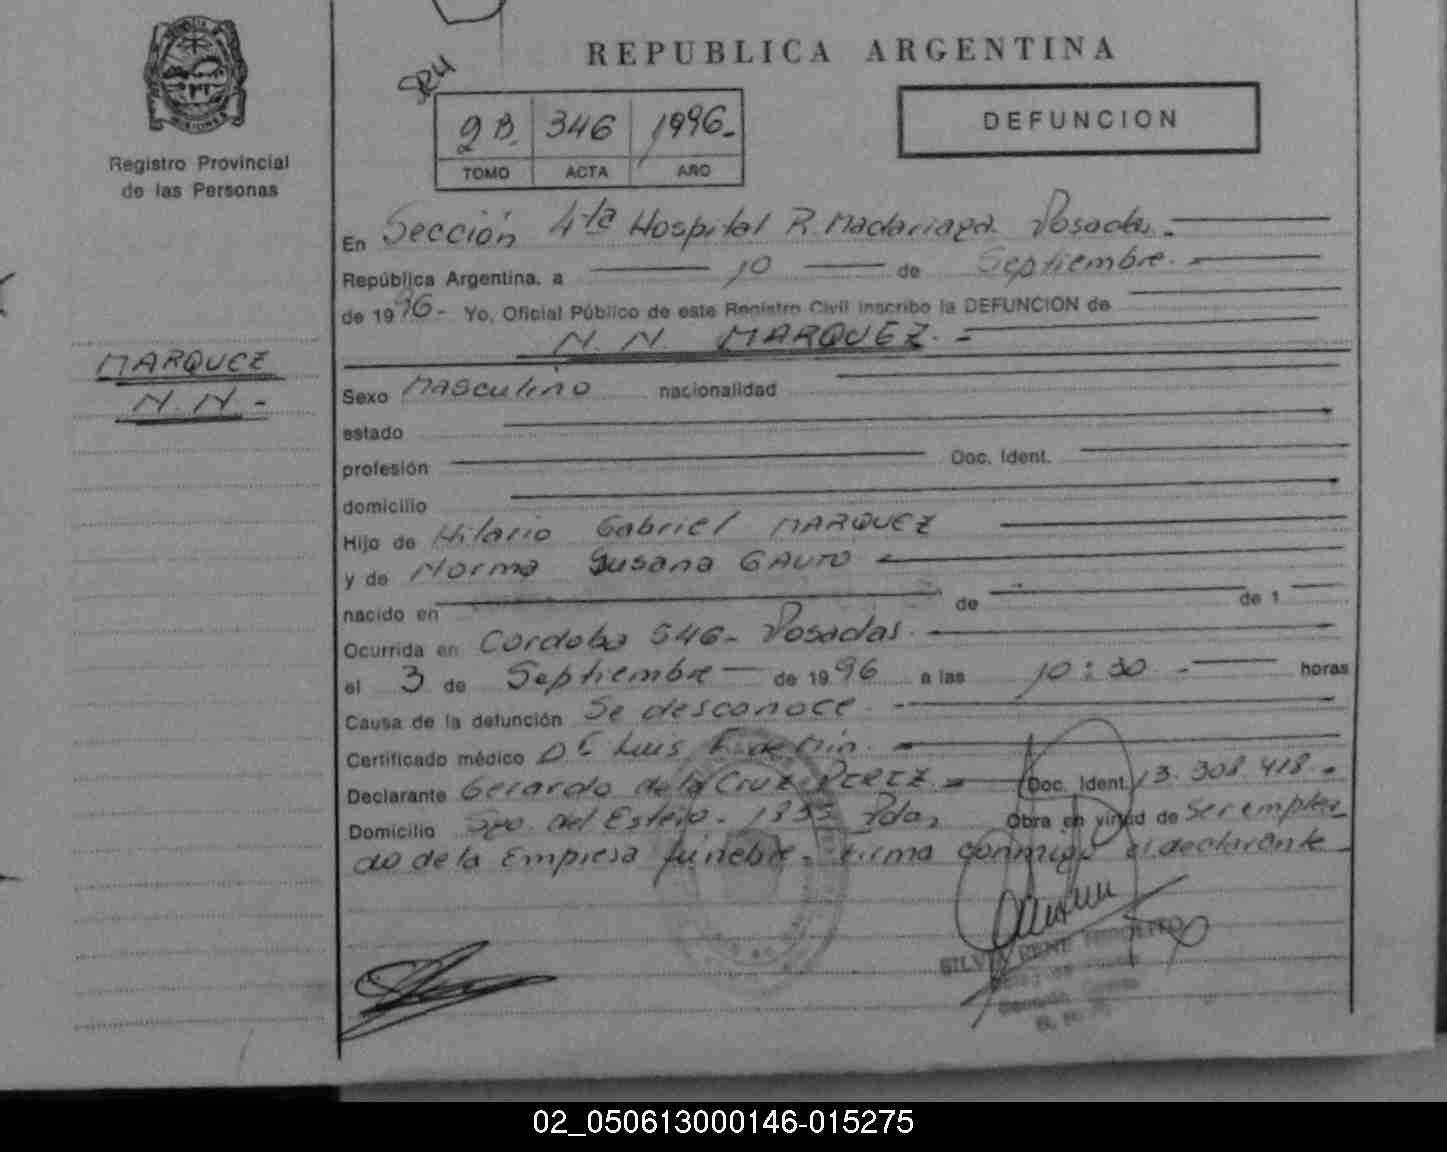 REPUBLICA ARGENTINA
SRU
2 B. 346 1996.-
TOMO ACTA AÑO
DEFUNCION
Registro Provincial
de las Personas
MARQUEZ
N.N.-
En Sección 4ta Hospital R. Madariaga. Posadas.-
República Argentina, a 10 de Septiembre.-
de 1996.- Yo, Oficial Público de este Registro Civil inscribo la DEFUNCION de
N. N. MARQUEZ.-
Sexo Masculino nacionalidad
estado
profesión Doc. Ident.
domicilio
Hijo de Hilario Gabriel MARQUEZ
y de Norma Susana GAUTO
nacido en de de 1
Ocurrida en Cordoba 546- Posadas.
el 3 de Septiembre de 1996 a las 10:30.- horas
Causa de la defunción Se desconoce.-
Certificado médico Dr Luis
Declarante Gerardo de la Cruz PEREZ.- Doc. Ident. 13.308.418.-
Domicilio Sgo. del Estero. 1855 Pdas, Obra en virtud de Ser emplea-
do de la Empresa fúnebre. Firma conmigo el declarante-
SILVIA RENE
02_050613000146-015275